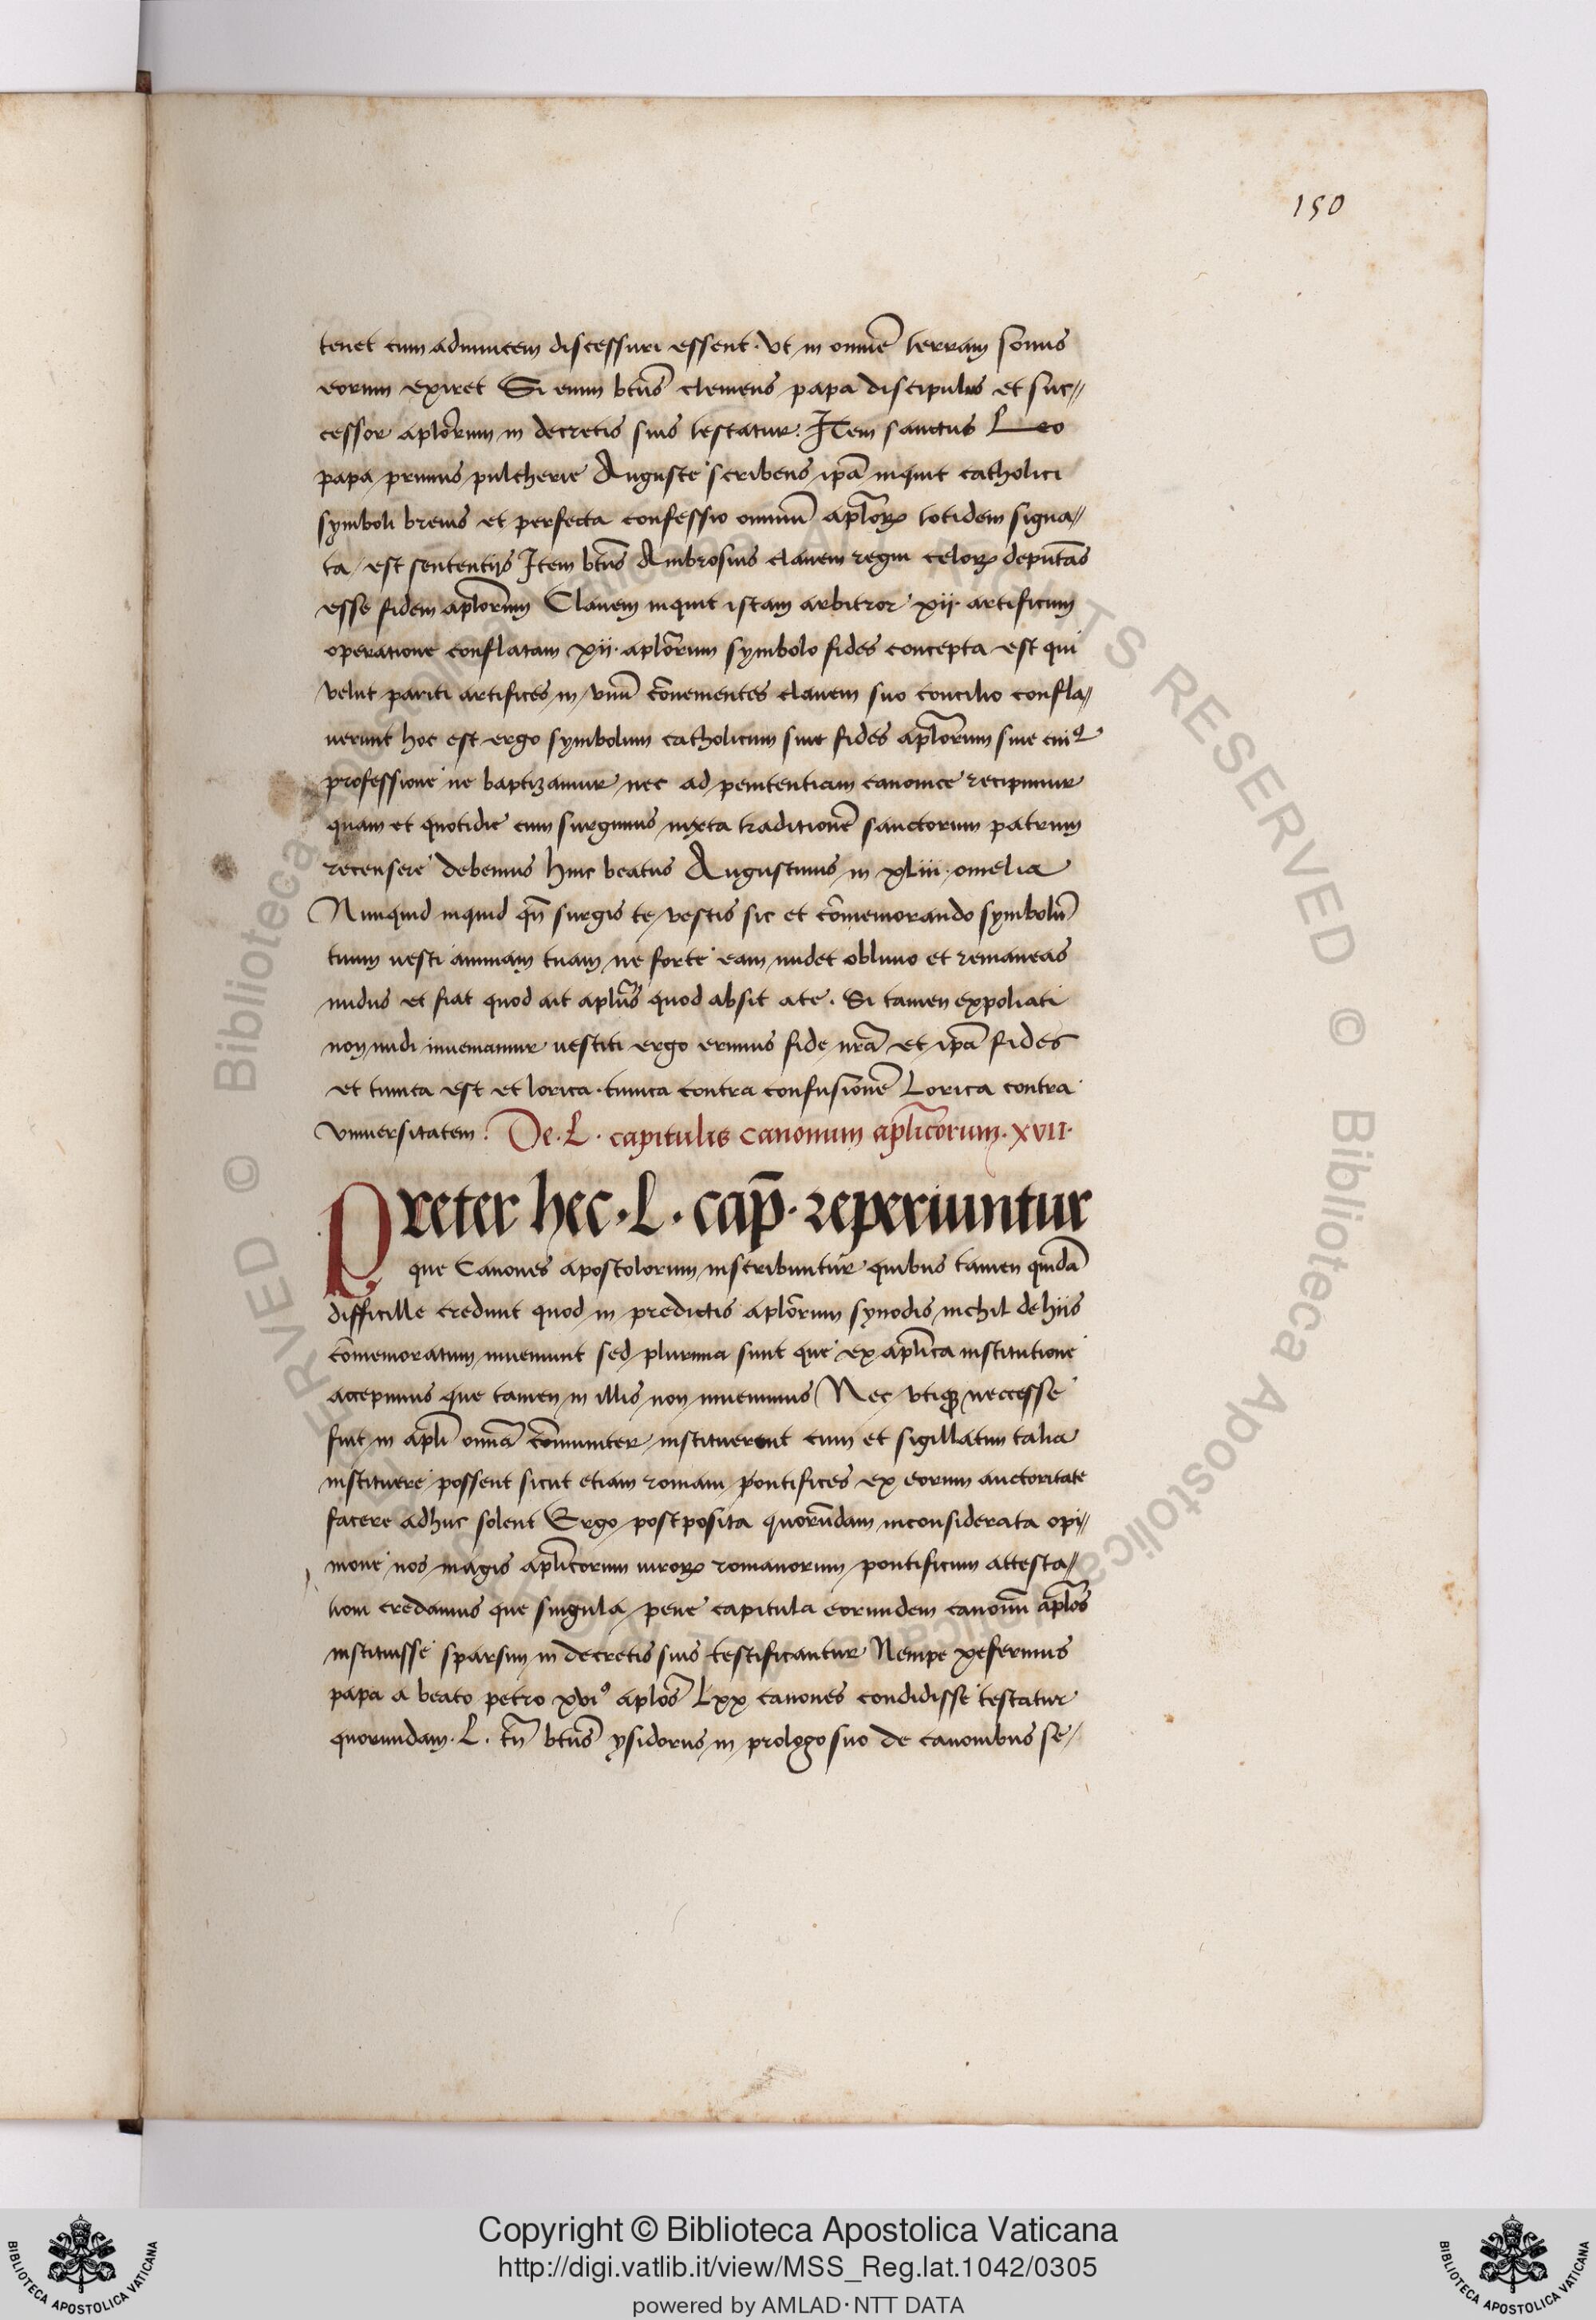 150
tenet cum adinuicem discessuri essent. Vt in omnē terram sonus
eorum exiret Si enim btūs clemens papa discipulus et suc//
cessor aplōrum in decretis suis testatur. Item sanctus Leo
papa primus pulcherie Auguste scribens ipā inquit catholici
symboli breuis et perfecta confessio omniū aplōrꝝ totidem signa//
ta est sententijs Item btūs Ambrosius clauem regni celorꝝ deputās
esse fidem aplōrum Clauem inquit istam arbitror xii. artificum
operatione conflatam xii. aplōrum symbolo fides concepta est qui
velut pariti artifices in vnū cōuenientes clauem suo concilio confla//
uerunt hoc est ergo symbolum catholicum siue fides aplōrum sine cui9
professione ne baptizamur nec ad penitentiam canonice recipimur
quam et quotidie cum surgimus iuxta traditionē sanctorum patrum
recensere debemus hinc beatus Augustinus in xliii. omelia
Nunquid inquid qn̄ surgis te vestis sic et cōmemorando symbolū
tuum uesti animam tuam ne forte eam nudet obliuio et remaneas
nudus et fiat quod ait aplūs quod absit ate. Si tamen expoliati
non nudi inueniamur uestiti ergo erimus fide nrā et ipā fides
et tunica est et lorica. tunica contra confusionē Lorica contra
vniuersitatem. De. L. capitulis canonum aplīcorum. xvii.
Preter hec. L. cap̄. reperiuntur
que Canones apostolorum inscribuntur quibus tamen quidā
difficille credunt quod in predictis aplōrum synodis nichil de hiis
cōmemoratum inueniunt sed plurima sunt que ex aplīca institutione
accepimus que tamen in illis non inuenimus Nec vtiqꝫ neccesse
fuit in aplī omīa cōmuniter instituerent cum et sigillatim talia
instituere possent sicut etiam romani pontifices ex eorum auctoritate
facere adhuc solent Ergo postposita quorūdam inconsiderata opi//
nione nos magis aplīcorum uirorꝝ romanorum pontificum attesta//
tioni credamus que singula pene capitula eorundem canonū aplōs
instituisse sparsim in decretis suis testificantur Nempe zeferinus
papa a beato petro xvi⁹ aplōs Lxx canones condidisse testatur
quorundam. L. tn̄ btūs ysidorus in prologo suo de canonibus se/
Copyright © Biblioteca Apostolica Vaticana
http://digi.vatlib.it/view/MSS_Reg.lat.1042/0305
powered by AMLAD·NTT DATA
BIBLIOTECA APOSTOLICA VATICANA
BIBLIOTECA APOSTOLICA VATICANA